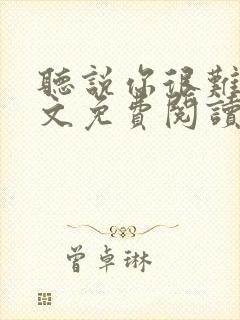 聽說你很難
文免費閱讀
曾卓琳